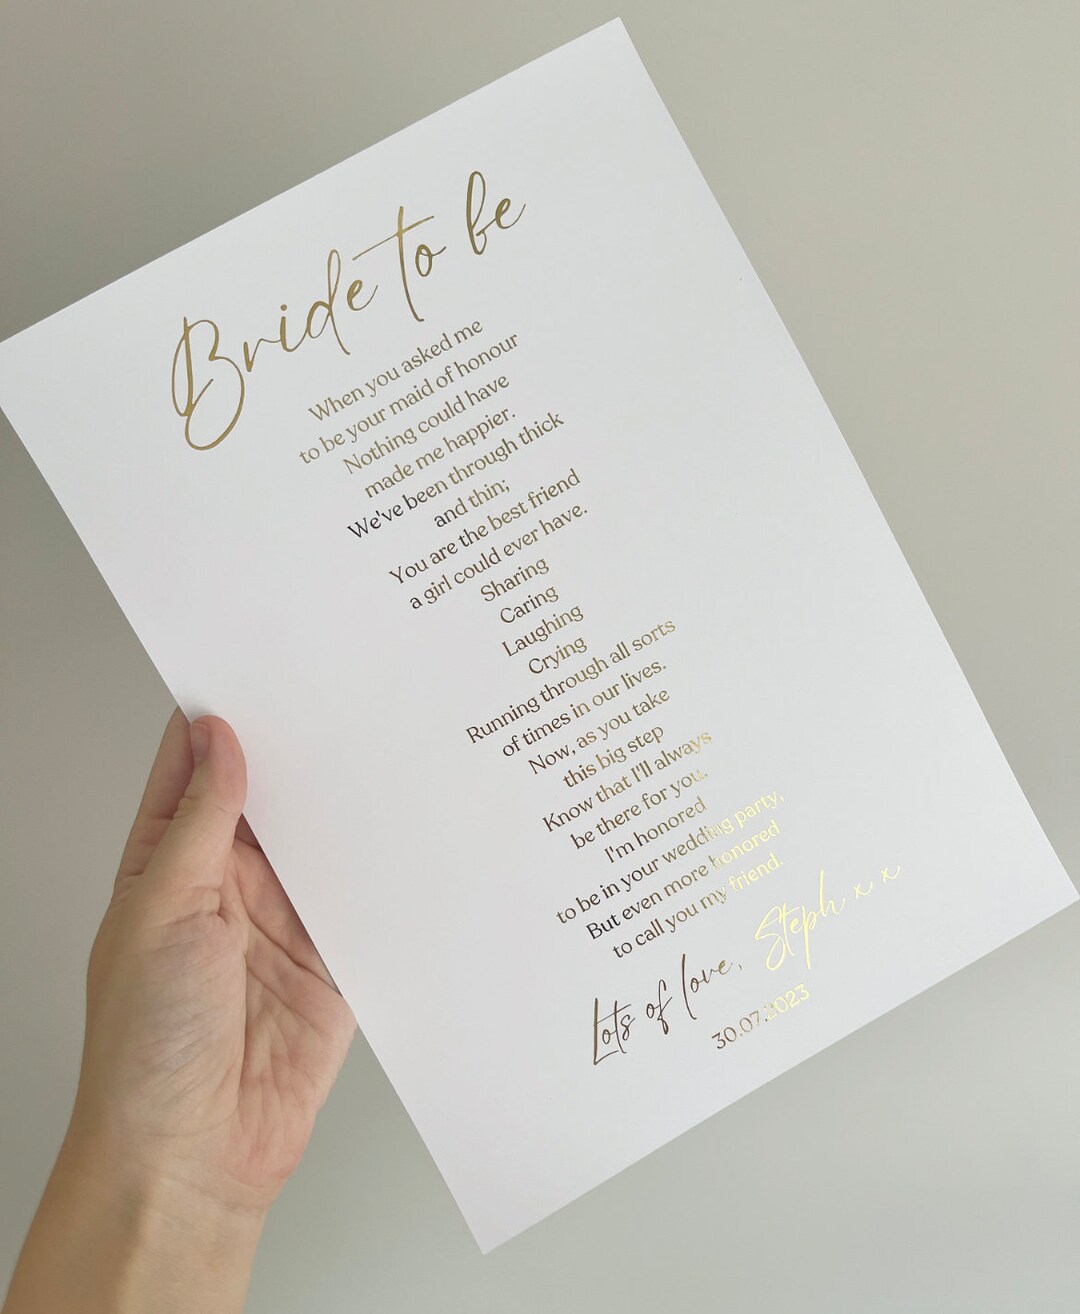 Bride to be
When you asked me
to be your maid of honour
Nothing could have
made me happier.
We've been through thick
and thin;
You are the best friend
a girl could ever have.
Sharing
Caring
Laughing
Crying
Running through all sorts
of times in our lives.
Now, as you take
this big step
Know that I'll always
be there for you.
I'm honored
to be in your wedding party,
But even more honored
to call you my friend.
Lots of love, Steph x x
30.07.2023